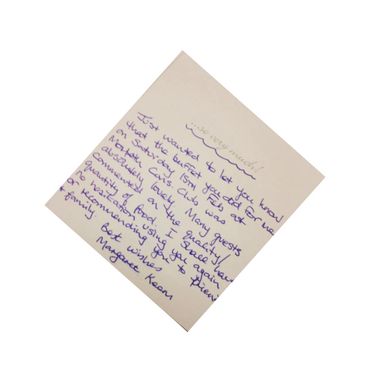 ...so very much!
Just wanted to let you know
that the buffet you did for me
on Saturday 15th Feb at
Civic Club was
absolutely lovely. Many guests
commented on the quality/
quantity of food. I shall have
no hesitation using you again
or recommending you to friends
& family
Best wishes
Margaret Keam